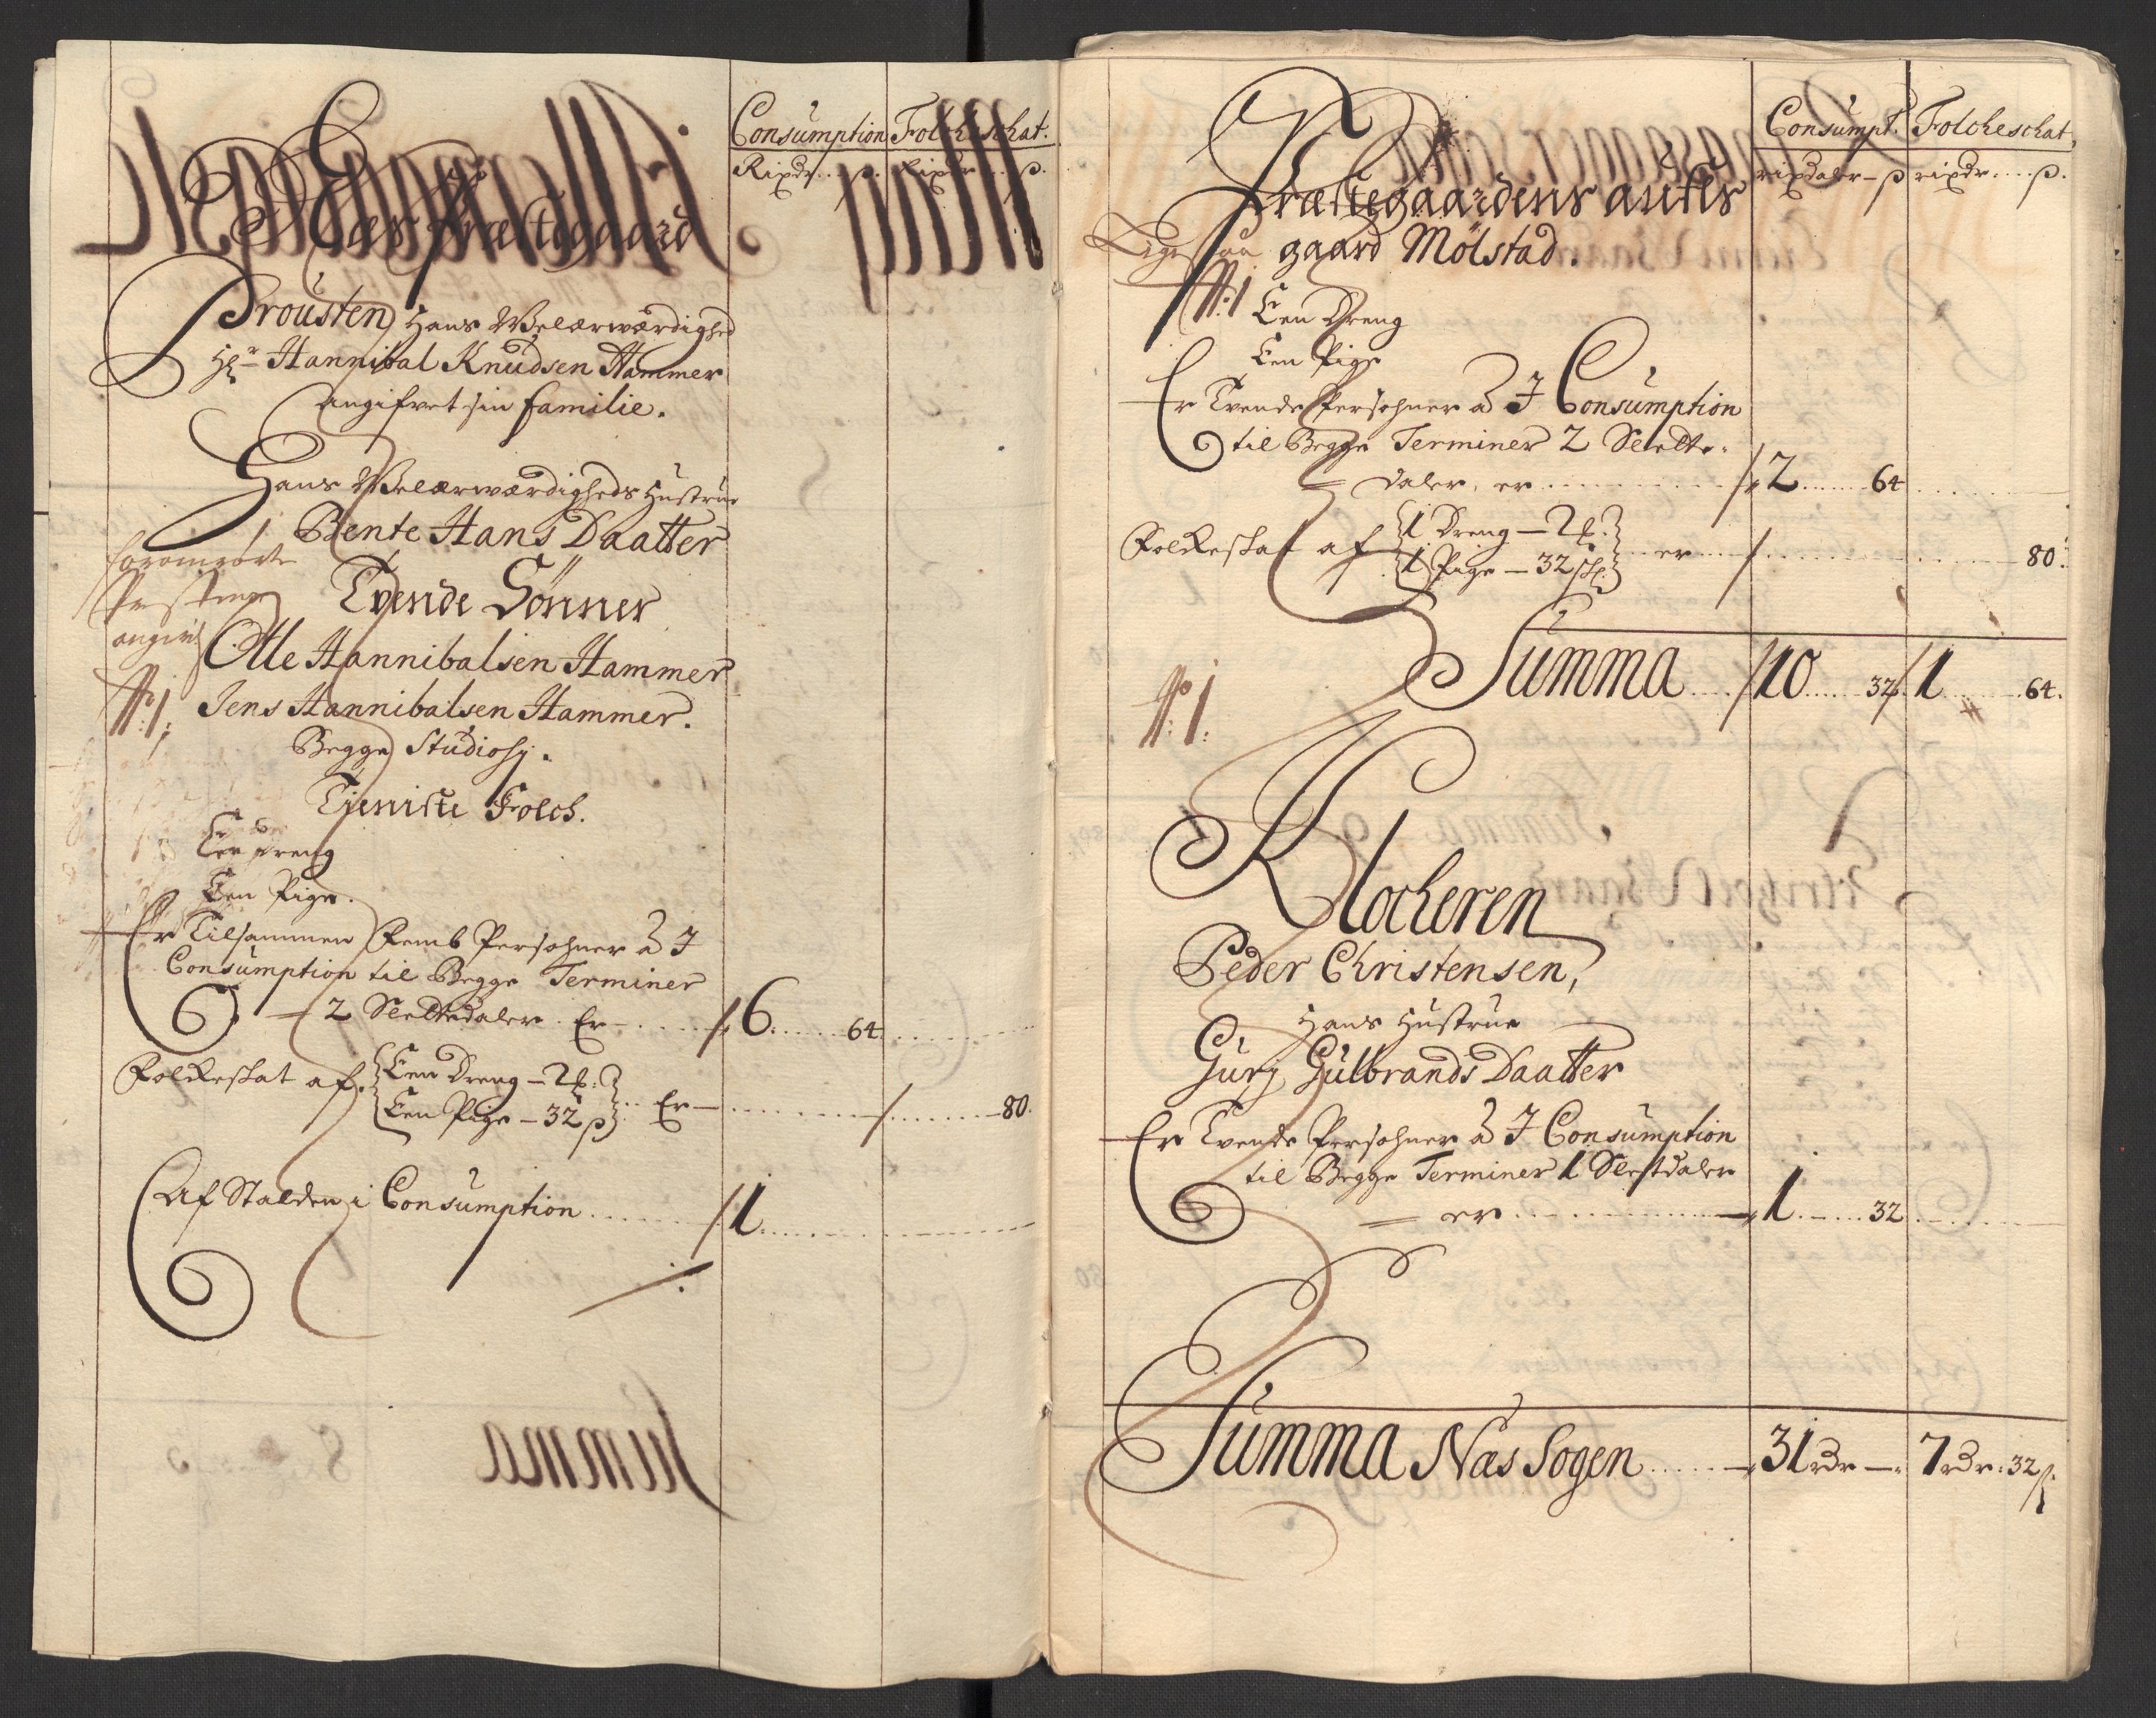 Consumption Folcheschat.
Rixdr. . . ß. Rixdr . . ß.
Næs Præstegaard
Prousten Hans Welærwærdighed
Hr. Hannibal Knudsen Hammer
angifvet sin familie.
Hans Welærwærdigheds Hustrue
Bente Hans Daatter
Tvende Sönner
angivet
Olle Hannibalsen Hammer
No. 1. Jens Hannibalsen Hammer.
Begge Studiosj.
Tieniste Folch.
Een Dreng
Een Pige.
Er Tilsammen Femb Persohner à I
Consumption til Begge Terminer
2 Slettedaler. Er - . . . . 6 . . . . 64
Folkeskat af. Een Dreng - 2 ℔:
Een Pige - 32 ß . . Er - . . . . 80.
Af Stalden i Consumption . . . . . 1 . . . .
Summa
Consumpt. Folcheschat,
rixdaler - ß rixdr. . . . ß.
Præstegaardens aufls
gaard Mölstad.
No. 1 Een Dreng
Een Pige
Er Tvende Persohner à I Consumption
til Begge Terminer 2 Slette-
daler, er . . . . . . 2 . . . . 64
Folkeskat af 1 Dreng - 2 ℔.
1 Pige - 32 ß . . er . . . . 80.
No. 1. Summa . . . . 10 . . . . 32 1 . . . . 64.
Klocheren
Peder Christensen,
Hans Hustrue
Gurj Gulbrands Daatter
Er Tvende Persohner à I Consumption
til Begge Terminer 1 Slestdaler
= er . . . . . . 1 . . . . 32
Summa Næs Sogen . . . . 31 rdr - 7 rdr: 32 ß.